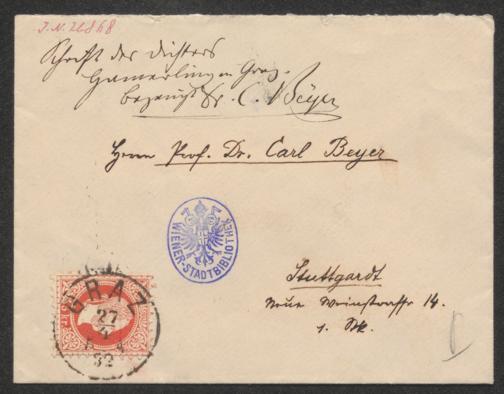 J.N. 22868
Schrift des Dichters
Hamerling in Graz.
bezeugt Dr. C. Beyer
Herrn Prof. Dr. Carl Beyer
WIENER-STADTBIBLIOTHEK
Stuttgardt
Neue Weinstraße 14.
1. Stk.
GRAZ
27
4
82